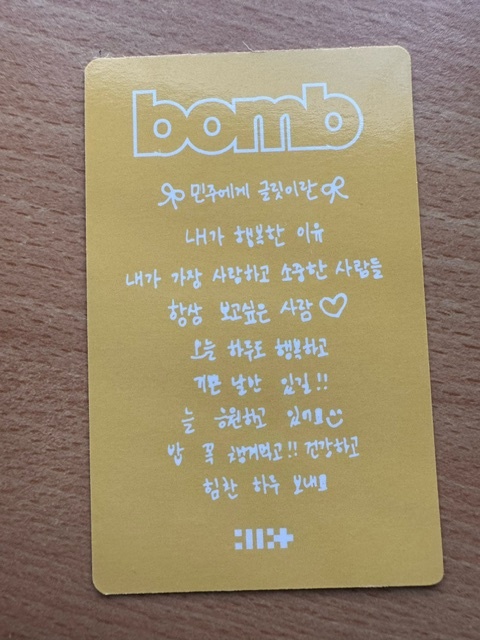 bomb
민주에게 글릿이란
내가 행복한 이유
내가 가장 사랑하고 소중한 사람들
항상 보고싶은 사람♡
오늘 하루도 행복하고
기쁜 날만 있길!!
늘 응원하고 있어요
밥 꼭 챙겨먹고!! 건강하고
힘찬 하루 보내요